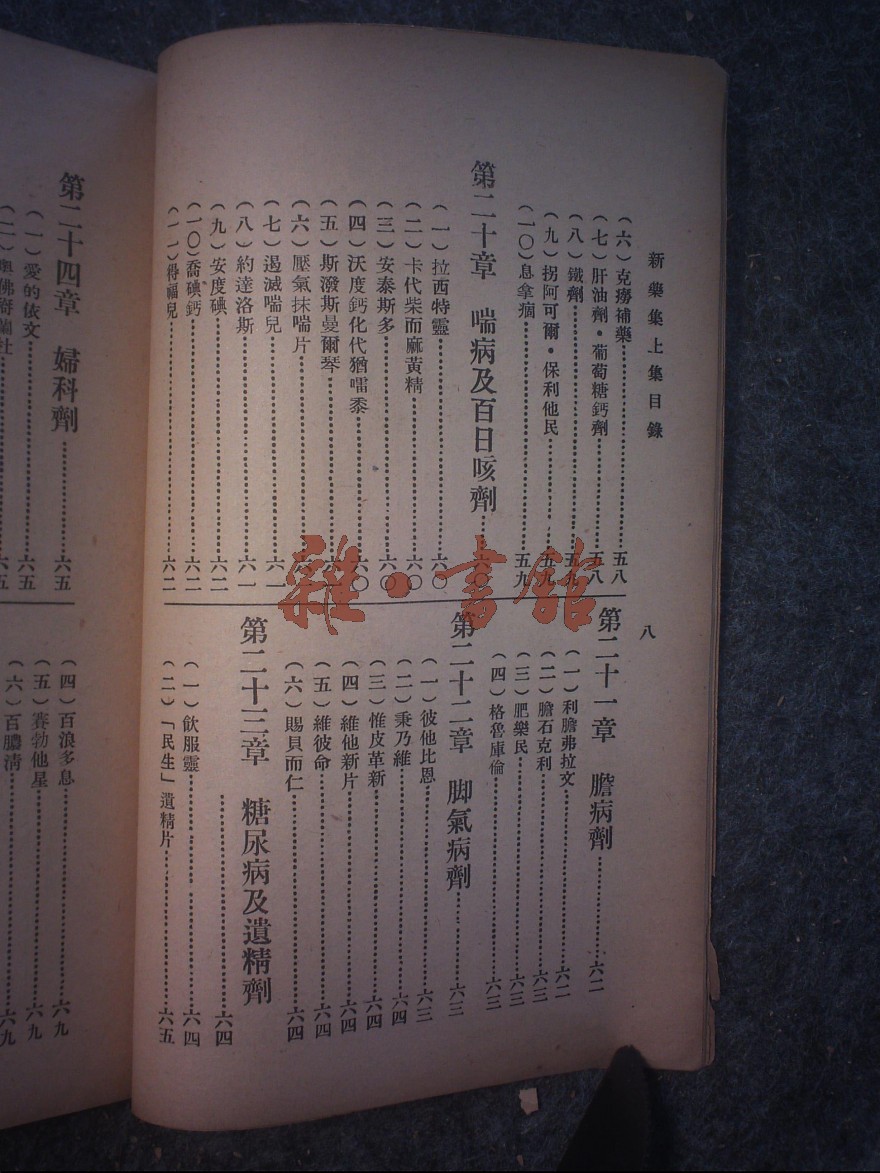 新藥集上集目錄
八
(六)克癆補藥……五八
(七)肝油劑·葡萄糖鈣劑……五八
(八)鐵劑……五九
(九)拐阿可爾·保利他民……五九
(一〇)息拿痼……五九
第二十章 喘病及百日咳劑……六〇
(一)拉西特靈……六〇
(二)卡代柴而麻黃精……六〇
(三)安泰斯多……六〇
(四)沃度鈣化代猶嚅黍……六〇
(五)斯潑斯曼爾琴……
(六)壓氣抹喘片……
(七)遏滅喘兒……六一
(八)約達洛斯……六一
(九)安度碘……六二
(一〇)喬碘鈣……六二
(一一)得福兒……六二
第二十一章 膽病劑……六二
(一)利膽弗拉文……六二
(二)膽石克利……六三
(三)肥樂民……六三
(四)格魯庫倫……六三
第二十二章 脚氣病劑……六三
(一)彼他比恩……六三
(二)秉乃維……六四
(三)惟皮革新……六四
(四)維他新片……六四
(五)維彼命……六四
(六)賜貝而仁……六四
第二十三章 糖尿病及遺精劑
……六四
(一)飲服靈……六四
(二)「民生」遺精片……六五
第二十四章 婦科劑……六五
(一)愛的依文……六五
(四)百浪多息……六九
(五)賽勃他星……六九
(六)百膿清……六九
雜·書館